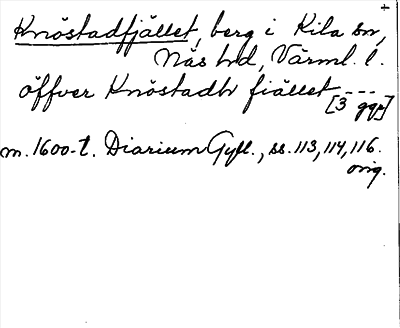 +
Knöstadfjället, berg i Kila sn,
Näs hd, Värml. l.
öffver Knöstadh fiället ---
[3 ggr]
m. 1600-t. Diarium Gyll., ss. 113, 114, 116.
orig.